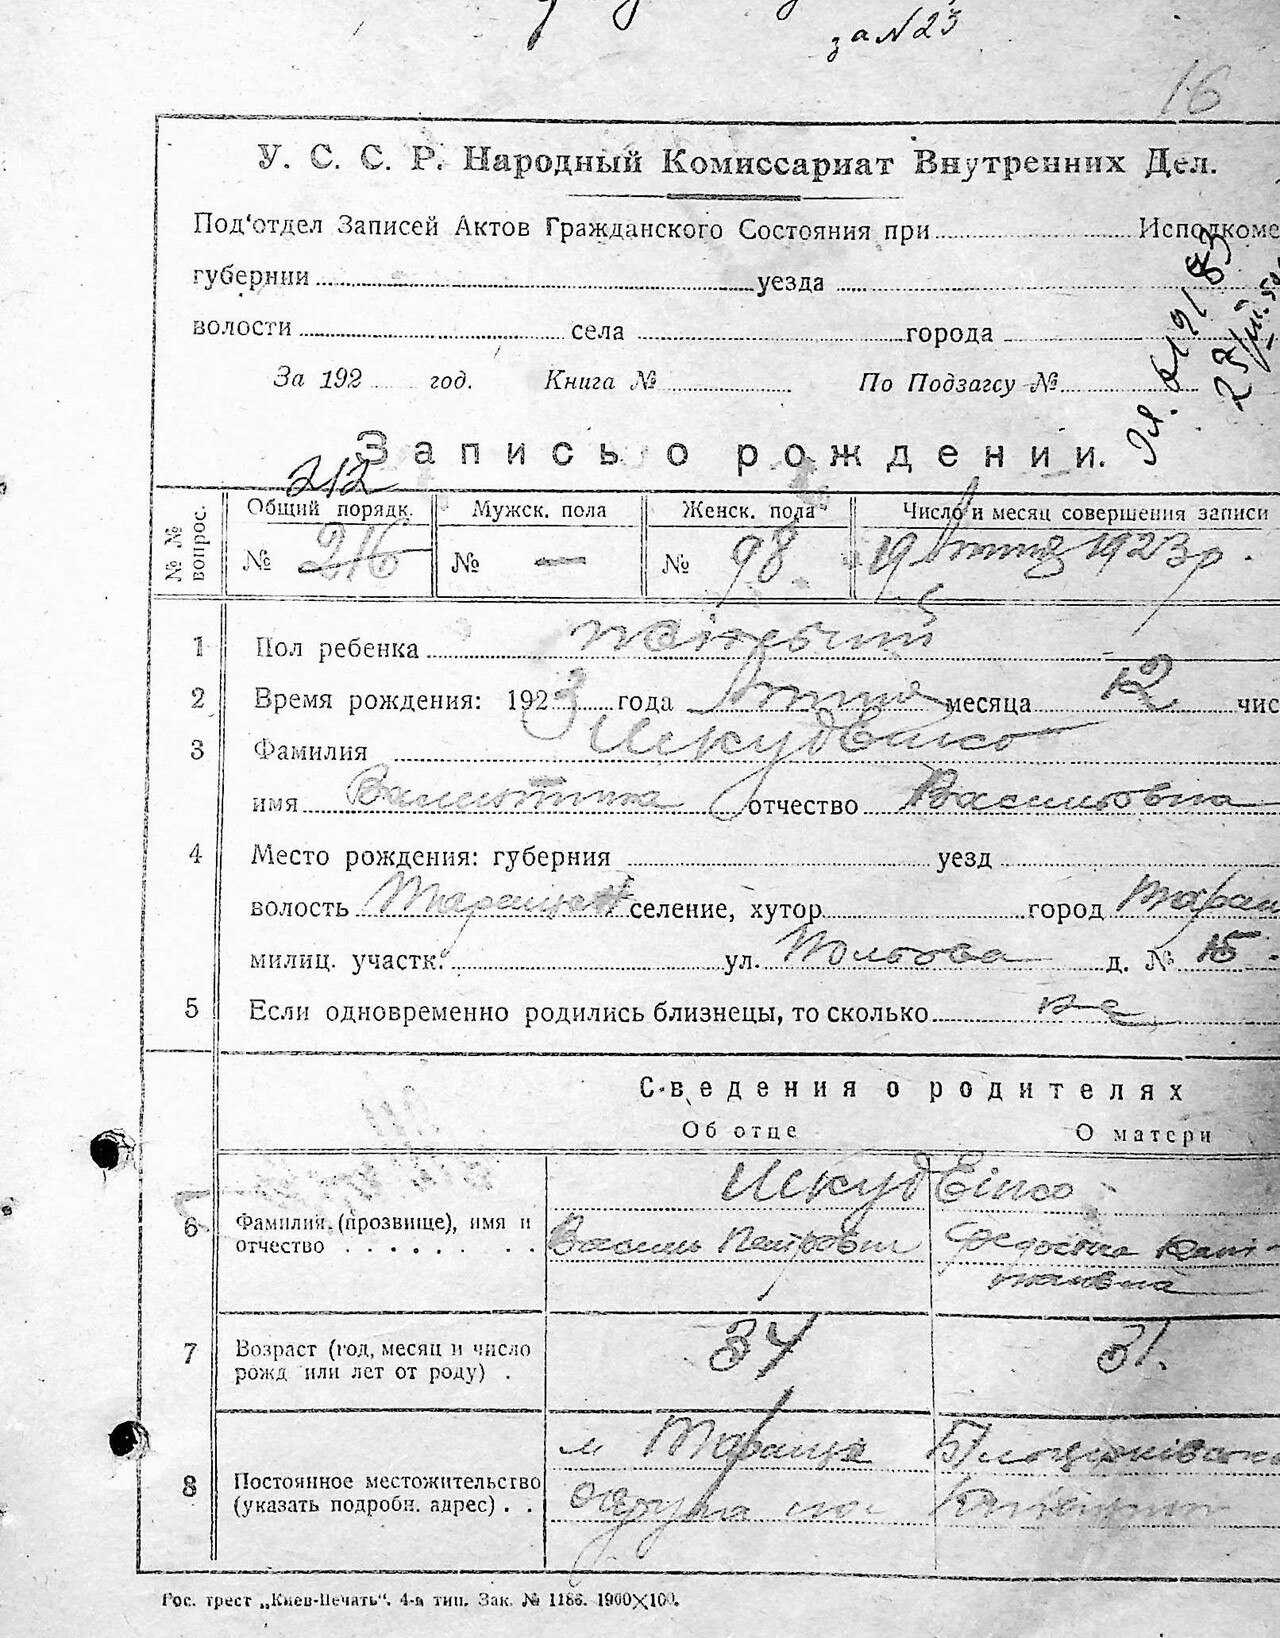 за N 23
16
У. С. С. Р. Народный Комиссариат Внутренних Дел.
Под'отдел Записей Актов Гражданского Состояния при Исполкоме
губернии уезда
волости села города
За 192 год. Книга № По Подзагсу №
Запись о рождении.
212
№№ вопрос.
Общий порядк. Мужск. пола Женск. пола Число и месяц совершения записи
№ 216 № — № 98 19 1923 р.
1 Пол ребенка жіночий
2 Время рождения: 1923 года месяца 12 чис
3 Фамилия
имя Валентина отчество Васильовна
4 Место рождения: губерния уезд
волость селение, хутор город Тара
милиц. участк. ул. д. № 15
5 Если одновременно родились близнецы, то сколько не
Сведения о родителях
Об отце О матери
6 Фамилия (прозвище), имя и
отчество
Василь Петрович Федосья
7 Возраст (год, месяц и число
рожд или лет от роду) .
34 31.
8 Постоянное местожительство
(указать подробн. адрес) . .
м Тараща Білоцерківської
округа
Гос. трест „Киев-Печать“. 4-я тип. Зак. № 1186. 1900×100.